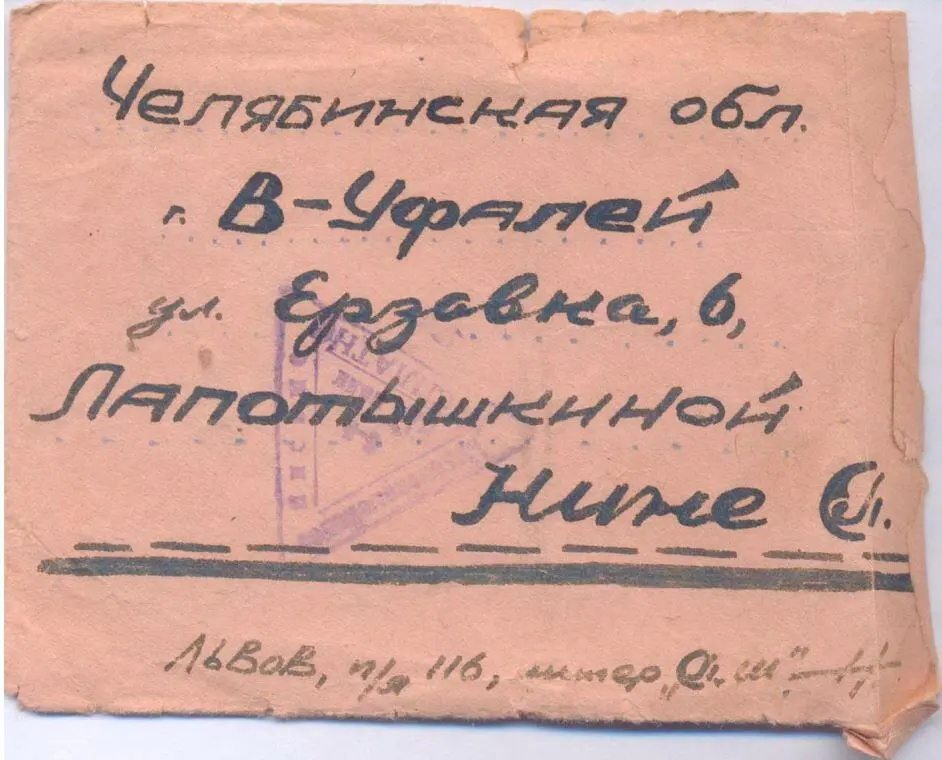 Челябинская обл.
г. В-Уфалей
ул. Ерзавка, 6,
Лапотышкиной
Нине
Львов, п/я 116, литер